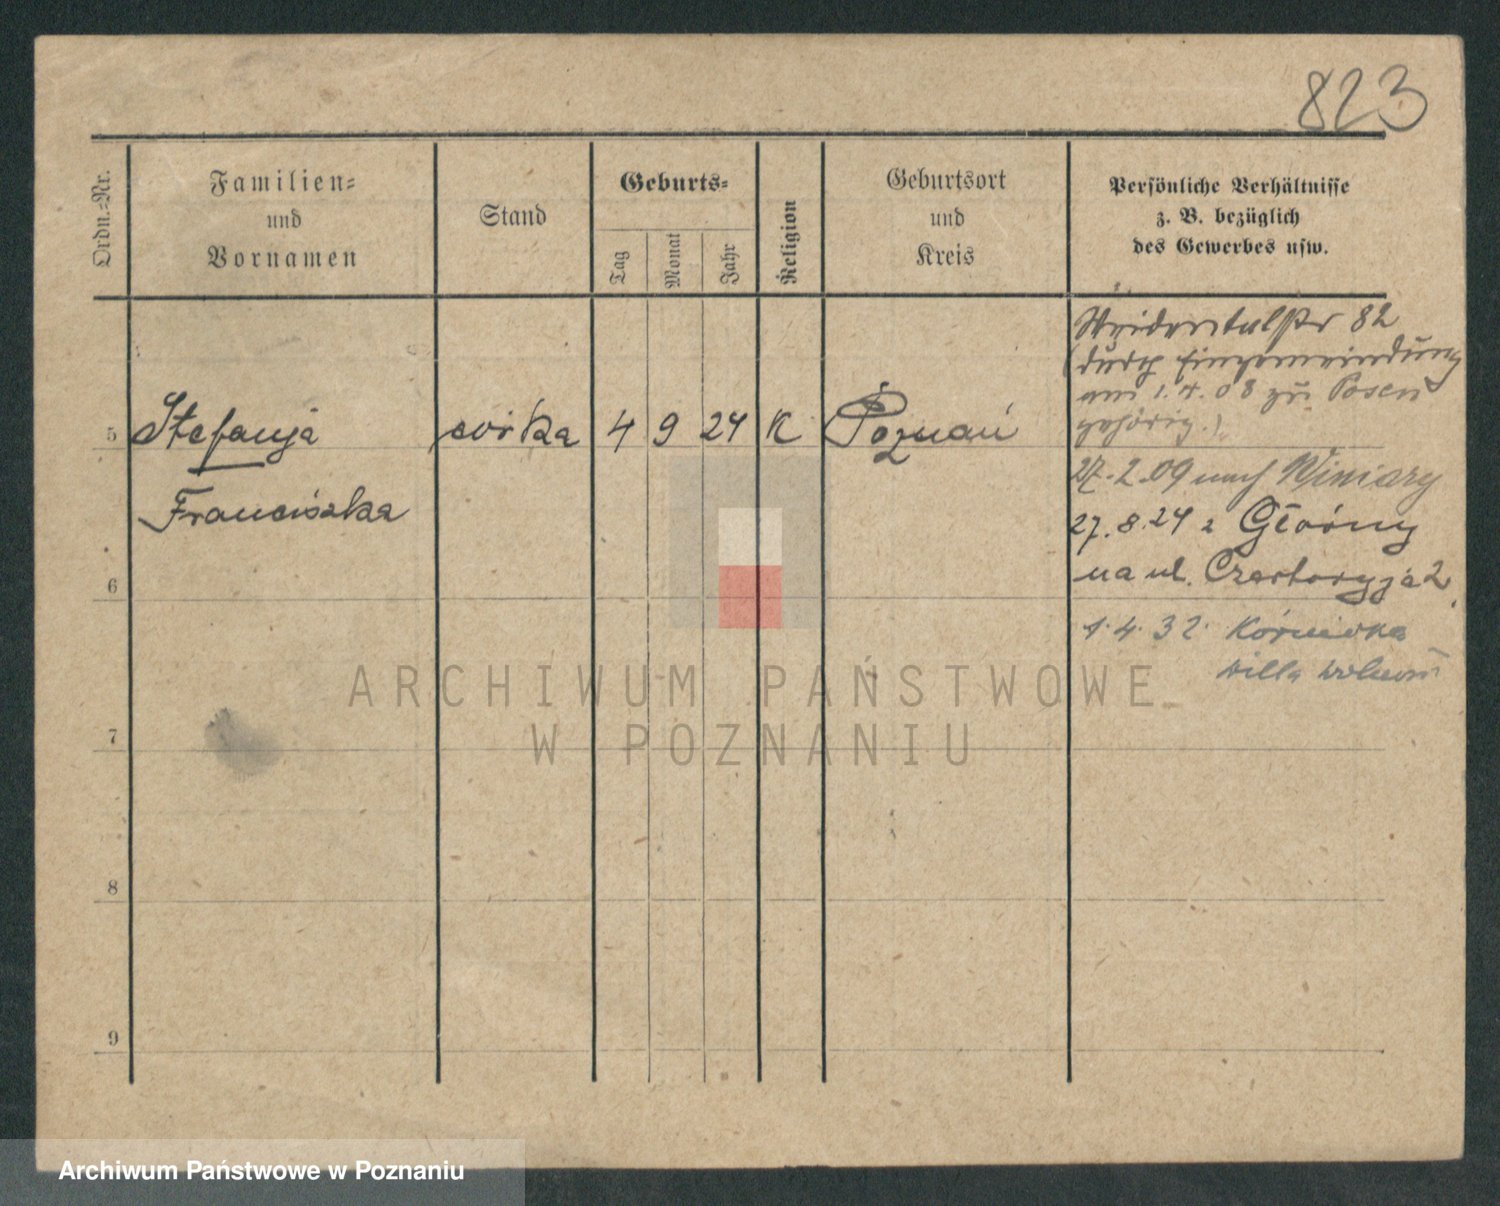 823
Ordn.-Nr.
Familien-
und
Vornamen
Stand
Geburts-
Tag
Monat
Jahr
Religion
Geburtsort
und
Kreis
Persönliche Verhältnisse
z. B. bezüglich
des Gewerbes usw.
82
(durch Eingemeindung
am 1.4.08 zu Posen
gehörig.)
5 Stefanja córka 4 9 24 K Poznań
27.2.09 nach Winiary
Franciszka
27.8.24 z Główny
6
na ul. Czartoryja 2
1.4.32 Kórnicka
willa
ARCHIWUM PAŃSTWOWE
W POZNANIU
7
8
9
Archiwum Państwowe w Poznaniu